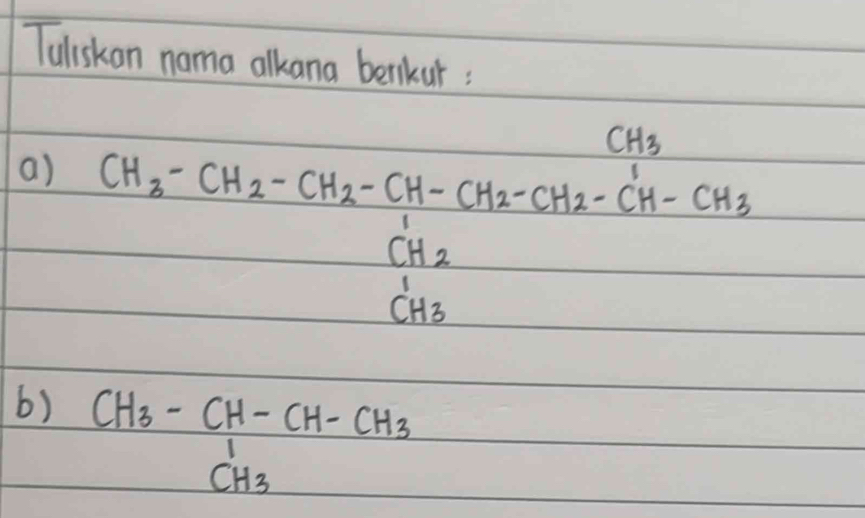 Tuliskan nama alkana berikut :
CH3
a) CH3 - CH2 - CH2 - CH - CH2 - CH2 - CH - CH3
CH2
CH3
b) CH3 - CH - CH - CH3
CH3